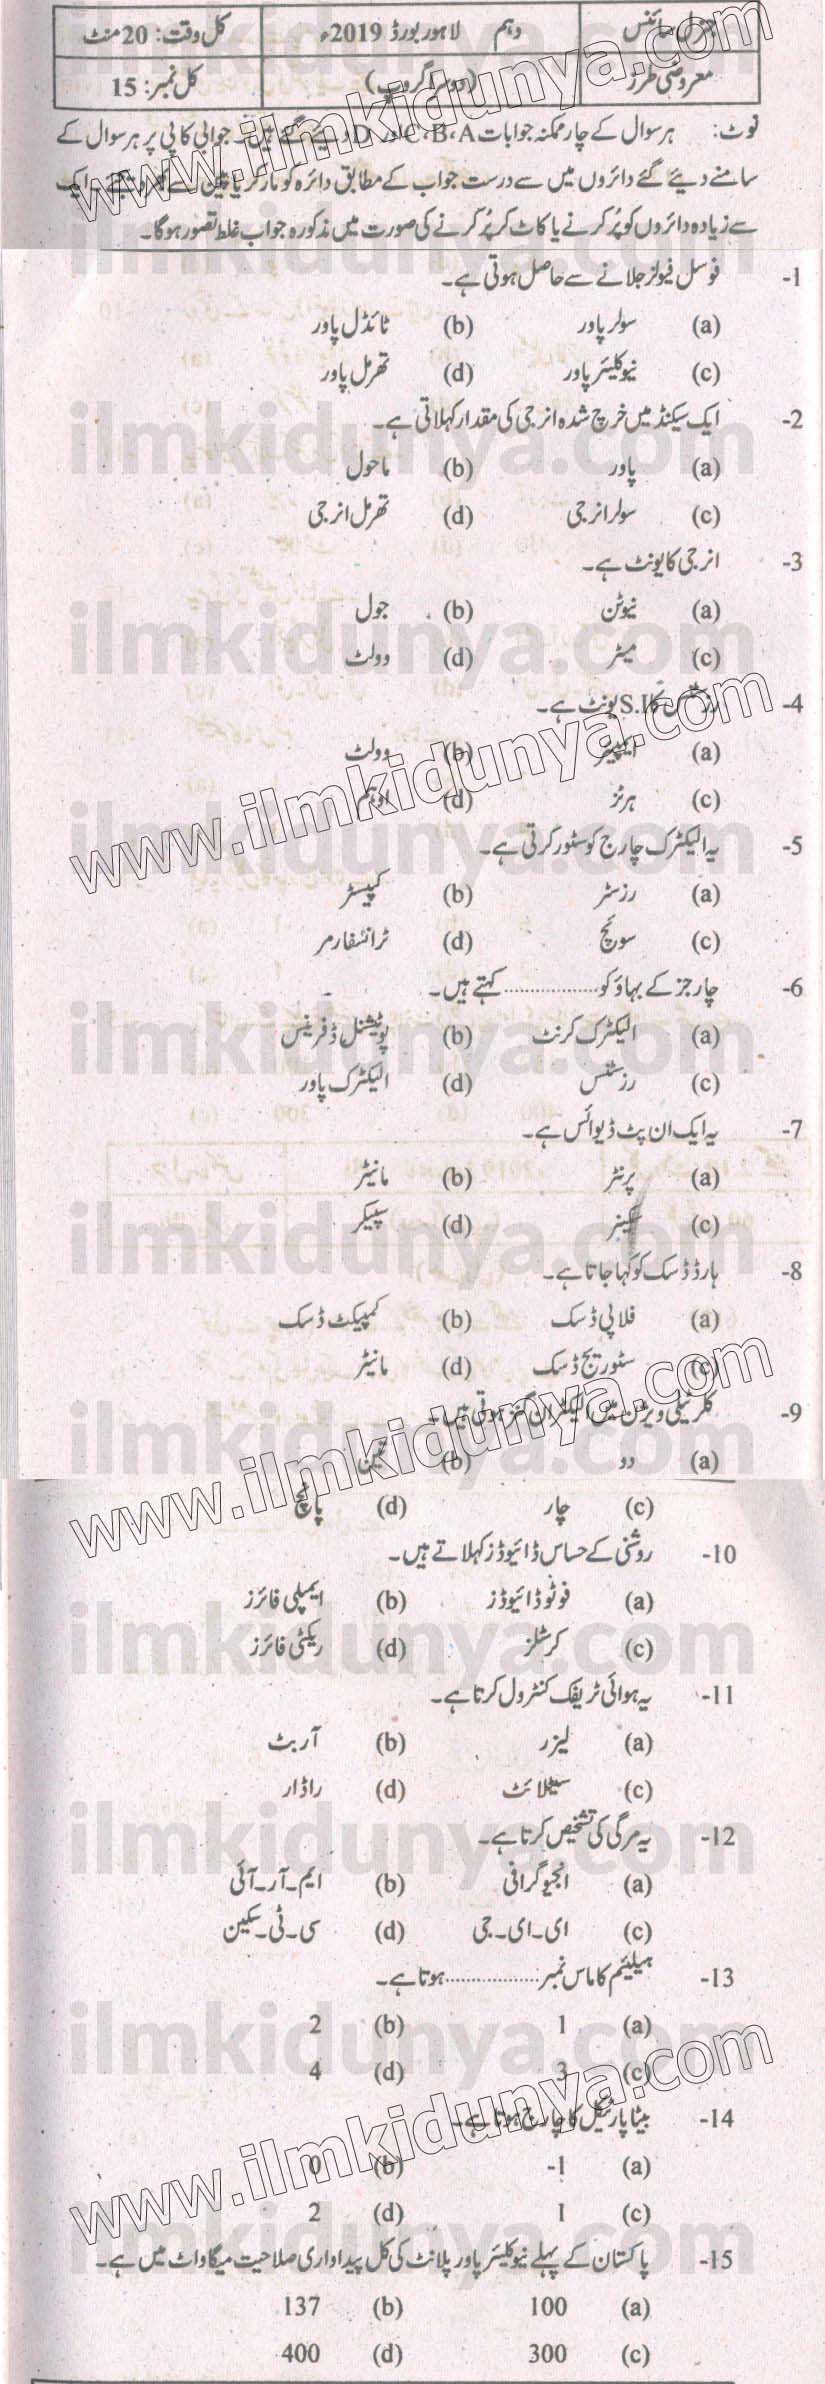 جنرل سائنس دہم لاہور بورڈ 2019ء کل وقت: 20 منٹ
معروضی طرز (دوسرا گروپ) کل نمبر: 15
نوٹ: ہر سوال کے چار ممکنہ جوابات C،B،A اور D دیئے گئے ہیں۔ جوابی کاپی پر ہر سوال کے
سامنے دیئے گئے دائروں میں سے درست جواب کے مطابق دائرہ کو مارکر یا پین سے ایک
سے زیادہ دائروں کو پُر کرنے یا کاٹ کر پُر کرنے کی صورت میں مذکورہ جواب غلط تصور ہوگا۔
1- فوسل فیولز جلانے سے حاصل ہوتی ہے۔
(a) سولر پاور (b) ٹائڈل پاور
(c) نیوکلیئر پاور (d) تھرمل پاور
2- ایک سیکنڈ میں خرچ شدہ انرجی کی مقدار کہلاتی ہے۔
(a) پاور (b) ماحول
(c) سولر انرجی (d) تھرمل انرجی
3- انرجی کا یونٹ ہے۔
(a) نیوٹن (b) جول
(c) میٹر (d) وولٹ
4- رزسٹنس کا S.I یونٹ ہے۔
(a) ایمپیئر (b) وولٹ
(c) ہرٹز (d) اوہم
5- یہ الیکٹرک چارج کو سٹور کرتی ہے۔
(a) رزسٹر (b) کپیسٹر
(c) سوئچ (d) ٹرانسفارمر
6- چارجز کے بہاؤ کو .................. کہتے ہیں۔
(a) الیکٹرک کرنٹ (b) پوٹینشل ڈفرینس
(c) رزسٹنس (d) الیکٹرک پاور
7- یہ ایک ان پٹ ڈیوائس ہے۔
(a) پرنٹر (b) مانیٹر
(c) سکینر (d) سپیکر
8- ہارڈ ڈسک کو کہا جاتا ہے۔
(a) فلاپی ڈسک (b) کمپیکٹ ڈسک
(c) سٹوریج ڈسک (d) مانیٹر
9- کلر ٹیلی ویژن میں الیکٹران گنز ہوتی ہیں۔
(a) دو (b) تین
(c) چار (d) پانچ
10- روشنی کے حساس ڈائیوڈز کہلاتے ہیں۔
(a) فوٹو ڈائیوڈز (b) ایمپلی فائرز
(c) کرسٹلز (d) ریکٹی فائرز
11- یہ ہوائی ٹریفک کنٹرول کرتا ہے۔
(a) لیزر (b) آربٹ
(c) سیٹلائٹ (d) راڈار
12- یہ مرگی کی تشخیص کرتا ہے۔
(a) انجیوگرافی (b) ایم۔آر۔آئی
(c) ای۔ای۔جی (d) سی۔ٹی۔سکین
13- ہیلیئم کا ماس نمبر .................. ہوتا ہے۔
(a) 1 (b) 2
(c) 3 (d) 4
14- بیٹا پارٹیکل کا چارج ہوتا ہے۔
(a) -1 (b) 0
(c) 1 (d) 2
15- پاکستان کے پہلے نیوکلیئر پاور پلانٹ کی کل پیداواری صلاحیت میگاواٹ میں ہے۔
(a) 100 (b) 137
(c) 300 (d) 400